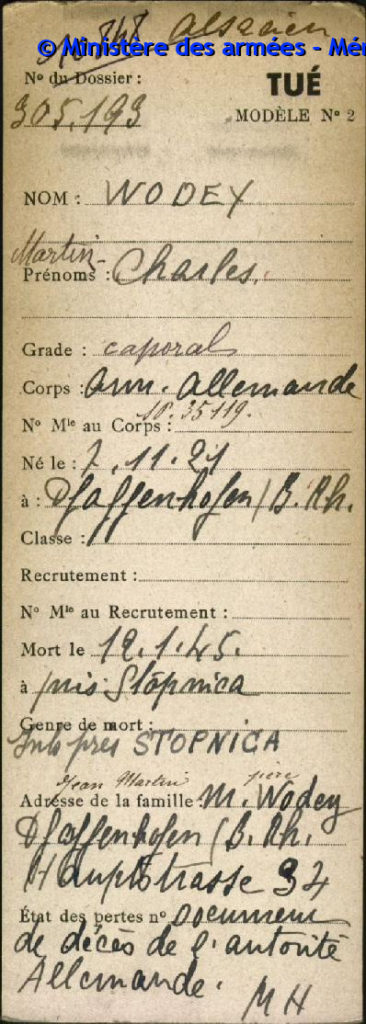 Alsacien
© Ministère des armées - Mé
No du Dossier :
TUÉ
305.193
MODÈLE No 2
NOM : WODEY
Martin-
Prénoms : Charles.
Grade : caporal
Corps : arm. allemande
No Mle au Corps : 18.35119.
Né le : 7.11.21
à : Pfaffenhofen / B. Rh.
Classe :
Recrutement :
No Mle au Recrutement :
Mort le 12.1.45.
à près Stopnica
Genre de mort :
près STOPNICA
Jean Martin père
Adresse de la famille : M. Wodey
Pfaffenhofen / B. Rh.
Hauptstrasse 34
État des pertes no Document
de décès de l'autorité
Allemande.
MH